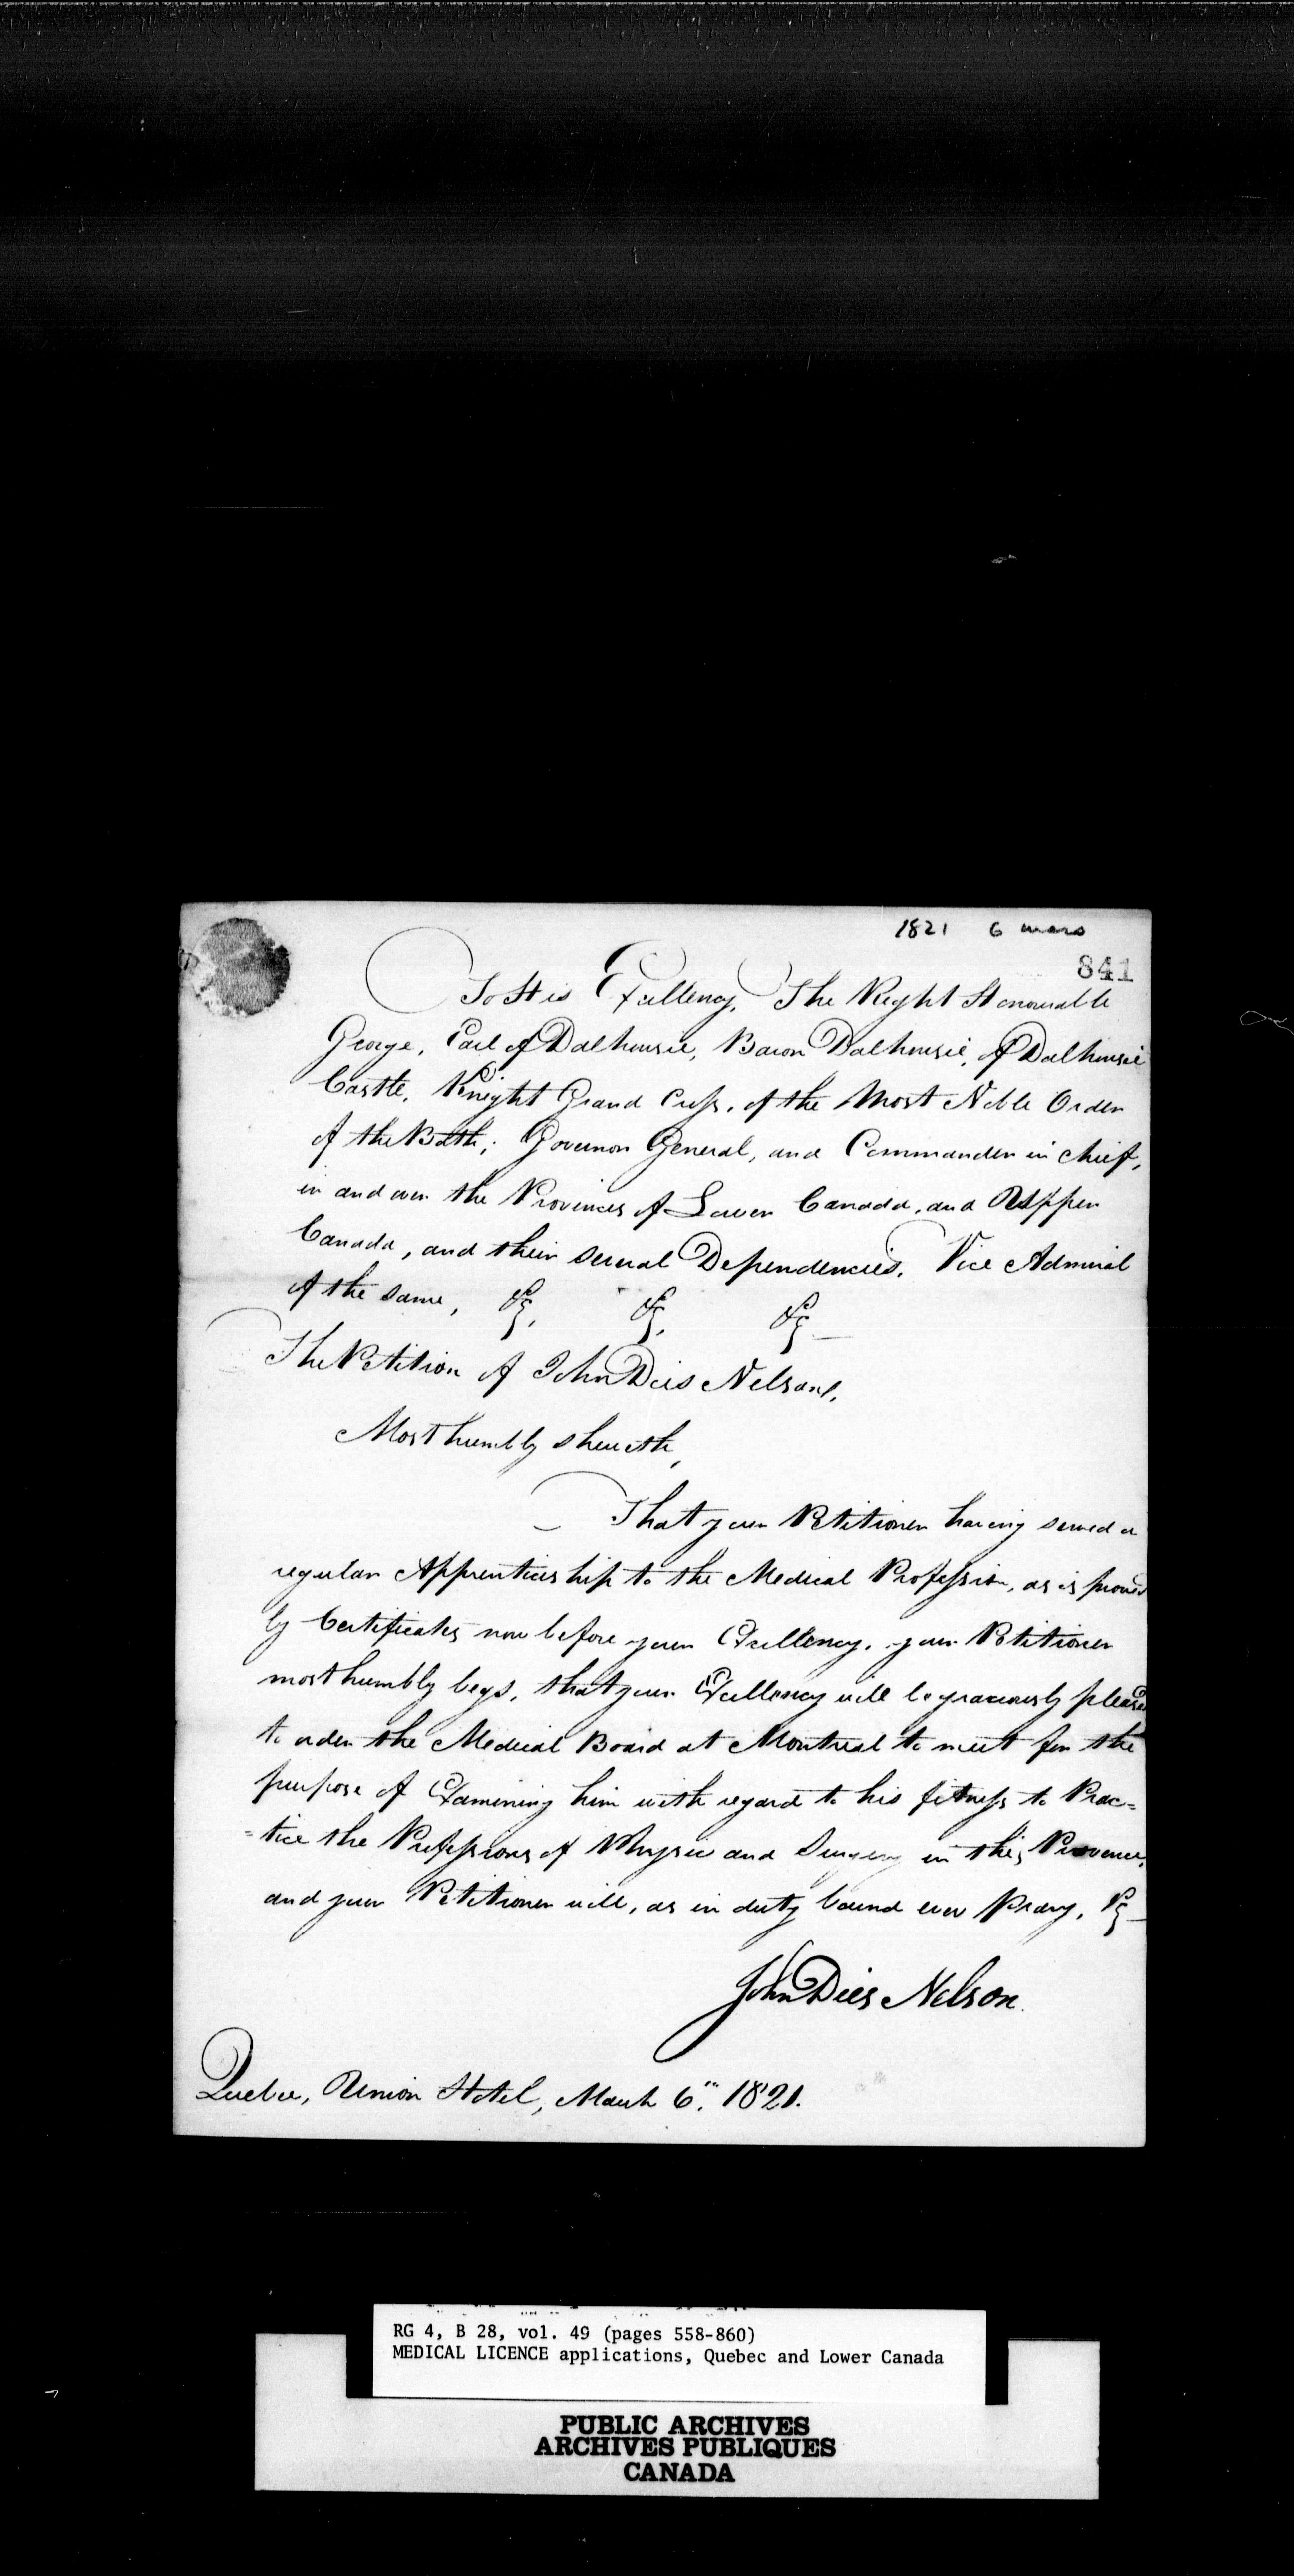 1821 6 mars
841
To His Excellency, The Right Honourable
George, Earl of Dalhousie, Baron Dalhousie, of Dalhousie
Castle, Knight Grand Cross, of the Most Noble Order
of the Bath; Governor General, and Commander in chief,
in and over the Provinces of Lower Canada, and Upper
Canada, and their several Dependencies, Vice Admiral
of the same, &c, &c, &c
The Petition of John Dies Nelson,
Most humbly sheweth,
That your Petitioner having served a
regular Apprenticeship to the Medical Profession, as is proved
by Certificates now before your Excellency, your Petitioner
most humbly begs, that your Excellency will be graciously pleased
to order the Medical Board at Montreal to meet for the
purpose of Examining him with regard to his fitness to Prac=
=tice the Professions of Physic and Surgery in this Province,
and your Petitioner will, as in duty bound ever Pray, &c
John Dies Nelson.
Quebec, Union Hotel, March 6th. 1821.
RG 4, B 28, vol. 49 (pages 558-860)
MEDICAL LICENCE applications, Quebec and Lower Canada
PUBLIC ARCHIVES
ARCHIVES PUBLIQUES
CANADA